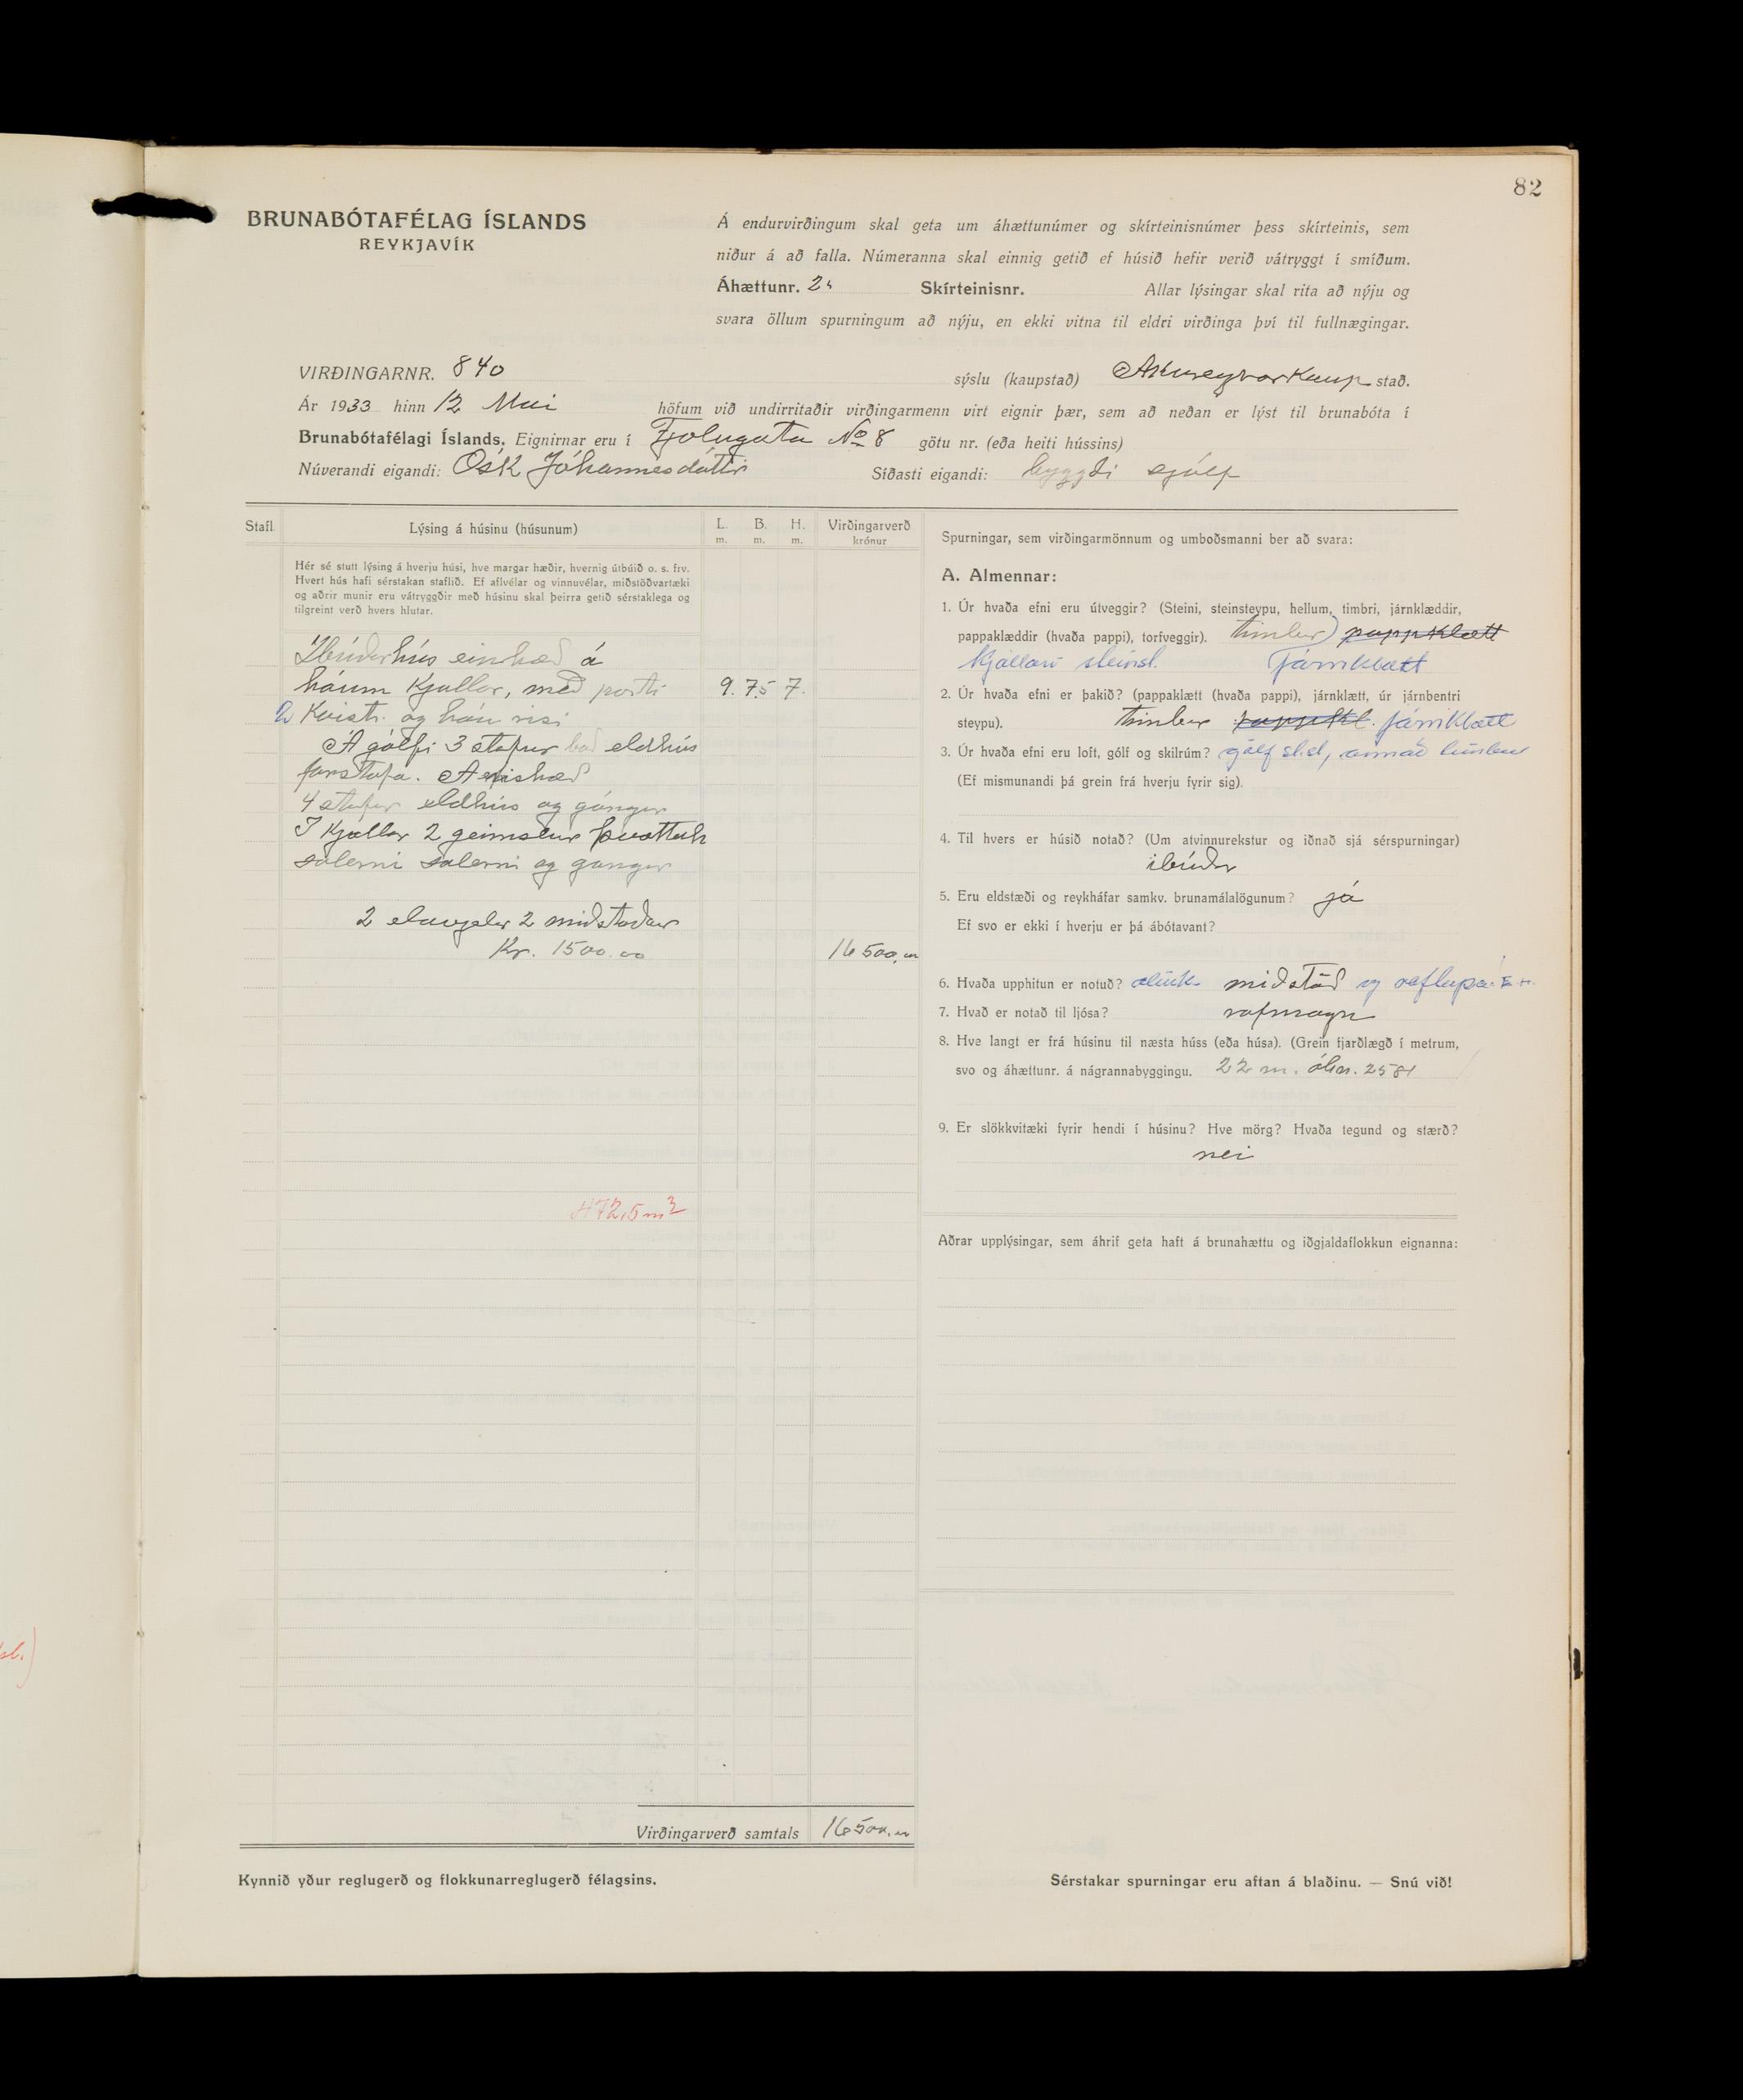 82
BRUNABÓTAFÉLAG ÍSLANDS
REYKJAVÍK
Á endurvirðingum skal geta um áhættunúmer og skírteinisnúmer þess skírteinis, sem
niður á að falla. Númeranna skal einnig getið ef húsið hefir verið vátryggt í smíðum.
Áhættunr. Skírteinisnr. Allar lýsingar skal rita að nýju og
svara öllum spurningum að nýju, en ekki vitna til eldri virðinga því til fullnægingar.
VIRÐINGARNR. 840
sýslu (kaupstað) Akureyrarkaup stað.
Ár 1933 hinn 12 Mai höfum við undirritaðir virðingarmenn virt eignir þær, sem að neðan er lýst til brunabóta í
Brunabótafélagi Íslands. Eignirnar eru í Fjolugata No 8 götu nr. (eða heiti hússins)
Núverandi eigandi: Osk Jóhannesdóttir Síðasti eigandi: byggði sjálf
Stafl. Lýsing á húsinu (húsunum) L. m. B. m. H. m. Virðingarverð krónur
Hér sé stutt lýsing á hverju húsi, hve margar hæðir, hvernig útbúið o. s. frv.
Hvert hús hafi sérstakan staflið. Ef aflvélar og vinnuvélar, miðstöðvartæki
og aðrir munir eru vátryggðir með húsinu skal þeirra getið sérstaklega og
tilgreint verð hvers hlutar.
Ibúðarhús einhæð á
háum Kjallar, með porti 9. 75 7.
2 Kvistir og háu risi
Á gólfi 3 stofur bað eldhús
forstofa. A rishæð
4 stofur eldhús og gángur
I Kjallar 2 geimslur þvottah
salerni salerni og gangur
2 elavjelar 2 miðstöðvar
Kr. 1500.00 16500,00
472,5 m3
Virðingarverð samtals 16500,00
Spurningar, sem virðingarmönnum og umboðsmanni ber að svara:
A. Almennar:
1. Úr hvaða efni eru útveggir? (Steini, steinsteypu, hellum, timbri, járnklæddir,
pappaklæddir (hvaða pappi), torfveggir). timbur) pappklætt
Kjallari steinst. Járnklætt
2. Úr hvaða efni er þakið? (pappaklætt (hvaða pappi), járnklætt, úr járnbentri
steypu). timbur pappkl. járnklætt
3. Úr hvaða efni eru loft, gólf og skilrúm? gólf st.st, annað timbur
(Ef mismunandi þá grein frá hverju fyrir sig).
4. Til hvers er húsið notað? (Um atvinnurekstur og iðnað sjá sérspurningar)
ibúðar
5. Eru eldstæði og reykháfar samkv. brunamálalögunum? já
Ef svo er ekki í hverju er þá ábótavant?
6. Hvaða upphitun er notuð? miðstöð og
7. Hvað er notað til ljósa? rafmagn
8. Hve langt er frá húsinu til næsta húss (eða húsa). (Grein fjarðlægð í metrum,
svo og áhættunr. á nágrannabyggingu. 22 m. áhn. 2581
9. Er slökkvitæki fyrir hendi í húsinu? Hve mörg? Hvaða tegund og stærð?
nei
Aðrar upplýsingar, sem áhrif geta haft á brunahættu og iðgjaldaflokkun eignanna:
Kynnið yður reglugerð og flokkunarreglugerð félagsins.
Sérstakar spurningar eru aftan á blaðinu. — Snú við!